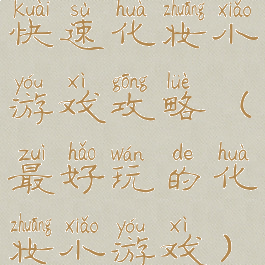 kuài sù huà zhuāng xiǎo
快速化妆小
yóu xì gōng lüè
游戏攻略（
zuì hǎo wán de huà
最好玩的化
zhuāng xiǎo yóu xì
妆小游戏）